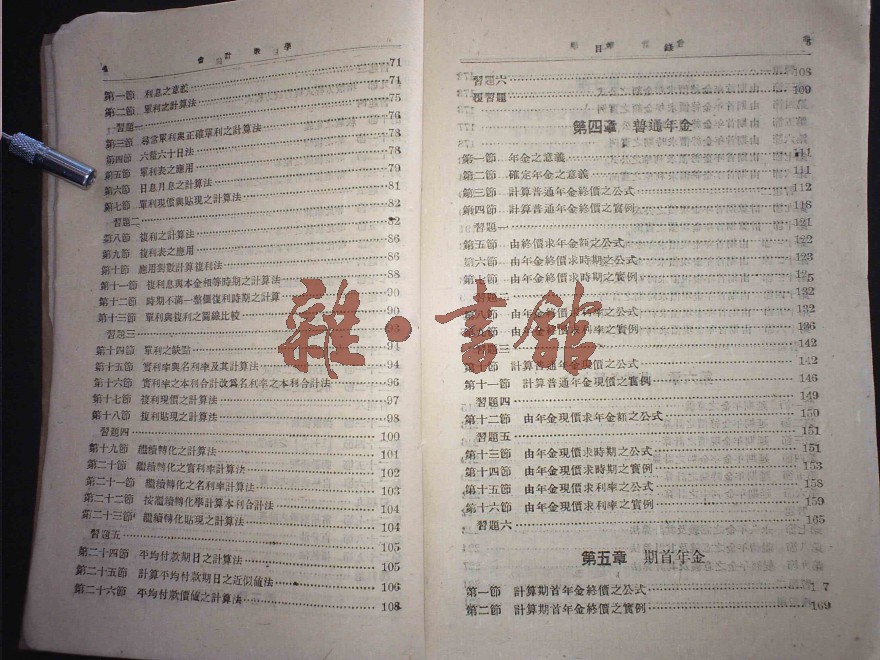 會計數學
第一節 利息之意義 71
第二節 單利之計算法 71
習題一 75
第三節 尋常單利與正確單利之計算法 76
第四節 六釐六十日法 76
第五節 單利表之應用 78
第六節 日息月息之計算法 79
第七節 單利現價與貼現之計算法 81
習題二 82
第八節 複利之計算法 82
第九節 複利表之應用 86
第十節 應用對數計算複利法 86
第十一節 複利息與本金相等時期之計算法 88
第十二節 時期不滿一整個複利時期之計算 90
第十三節 單利與複利之圖線比較 90
習題三 93
第十四節 單利之缺點 94
第十五節 實利率與名利率及其計算法 94
第十六節 實利率之本利合計改爲名利率之本利合計法 96
第十七節 複利現價之計算法 97
第十八節 複利貼現之計算法 98
習題四 100
第十九節 繼續轉化之計算法 101
第二十節 繼續轉化之實利率計算法 102
第二十一節 繼續轉化之名利率計算法 103
第二十二節 按繼續轉化學計算本利合計法 104
第二十三節 繼續轉化貼現之計算法 104
習題五 105
第二十四節 平均付款期日之計算法 105
第二十五節 計算平均付款期日之近似值法 106
第二十六節 平均付款價值之計算法 108
目錄 5
習題六 108
複習題 109
第四章 普通年金
第一節 年金之意義 111
第二節 確定年金之意義 111
第三節 計算普通年金終價之公式 112
第四節 計算普通年金終價之實例 118
習題一 121
第五節 由終價求年金額之公式 122
第六節 由年金終價求時期之公式 123
第七節 由年金終價求時期之實例
習題二 132
第八節 由年金終價求利率之公式 132
第九節 由年金終價求利率之實例 136
習題三 142
第十節 計算普通年金現價之公式 142
第十一節 計算普通年金現價之實例 146
習題四 149
第十二節 由年金現價求年金額之公式 150
習題五 151
第十三節 由年金現價求時期之公式 151
第十四節 由年金現價求時期之實例 153
第十五節 由年金現價求利率之公式 158
第十六節 由年金現價求利率之實例 159
習題六 165
第五章 期首年金
第一節 計算期首年金終價之公式
第二節 計算期首年金終價之實例 169
雜·書館